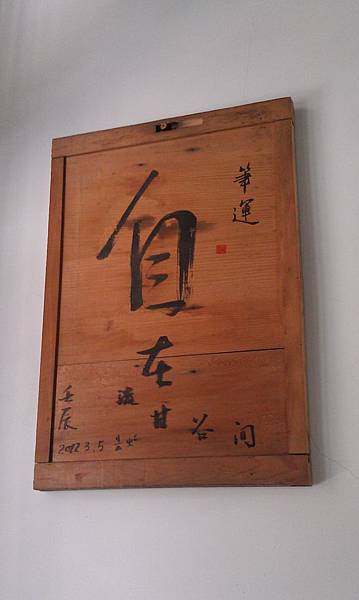 筆運
自在
流甘谷间
壬辰
2012.3.5